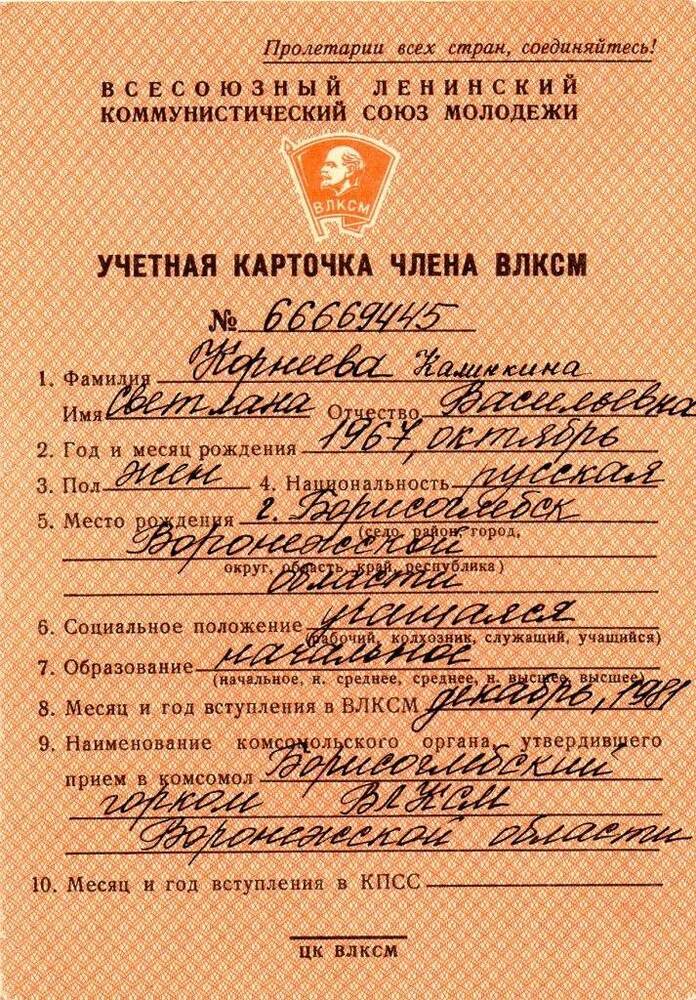 Пролетарии всех стран, соединяйтесь!
ВСЕСОЮЗНЫЙ ЛЕНИНСКИЙ
КОММУНИСТИЧЕСКИЙ СОЮЗ МОЛОДЕЖИ
ВЛКСМ
УЧЕТНАЯ КАРТОЧКА ЧЛЕНА ВЛКСМ
№ 66669445
1. Фамилия Корнеева Калинкина
Имя Светлана Отчество Васильевна
2. Год и месяц рождения 1967, октябрь
3. Пол жен 4. Национальность русская
5. Место рождения г. Борисоглебск
(село, район, город,
Воронежской
округ, область, край, республика)
области
6. Социальное положение учащаяся
(рабочий, колхозник, служащий, учащийся)
7. Образование начальное
(начальное, н. среднее, среднее, н. высшее, высшее)
8. Месяц и год вступления в ВЛКСМ декабрь, 1981
9. Наименование комсомольского органа, утвердившего
прием в комсомол Борисоглебский
горком ВЛКСМ
Воронежской области
10. Месяц и год вступления в КПСС
ЦК ВЛКСМ